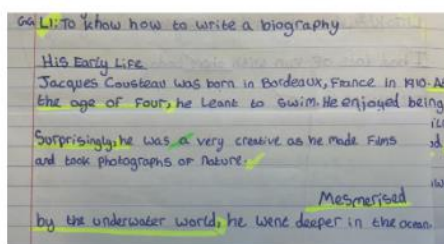 GG LI: To know how to write a biography
His Early Life
Jacques Cousteau was born in Bordeaux, France in 1910. At
the age of four, he leant to swim. He enjoyed being
Surprisingly, he was a very creative as he made films
and took photographs of nature.
Mesmerised
by the underwater world, he went deeper in the ocean.